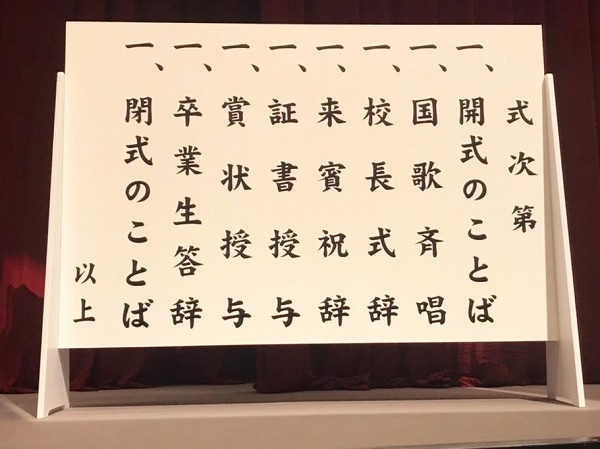 式次第
一、開式のことば
一、国歌斉唱
一、校長式辞
一、来賓祝辞
一、証書授与
一、賞状授与
一、卒業生答辞
一、閉式のことば
以上